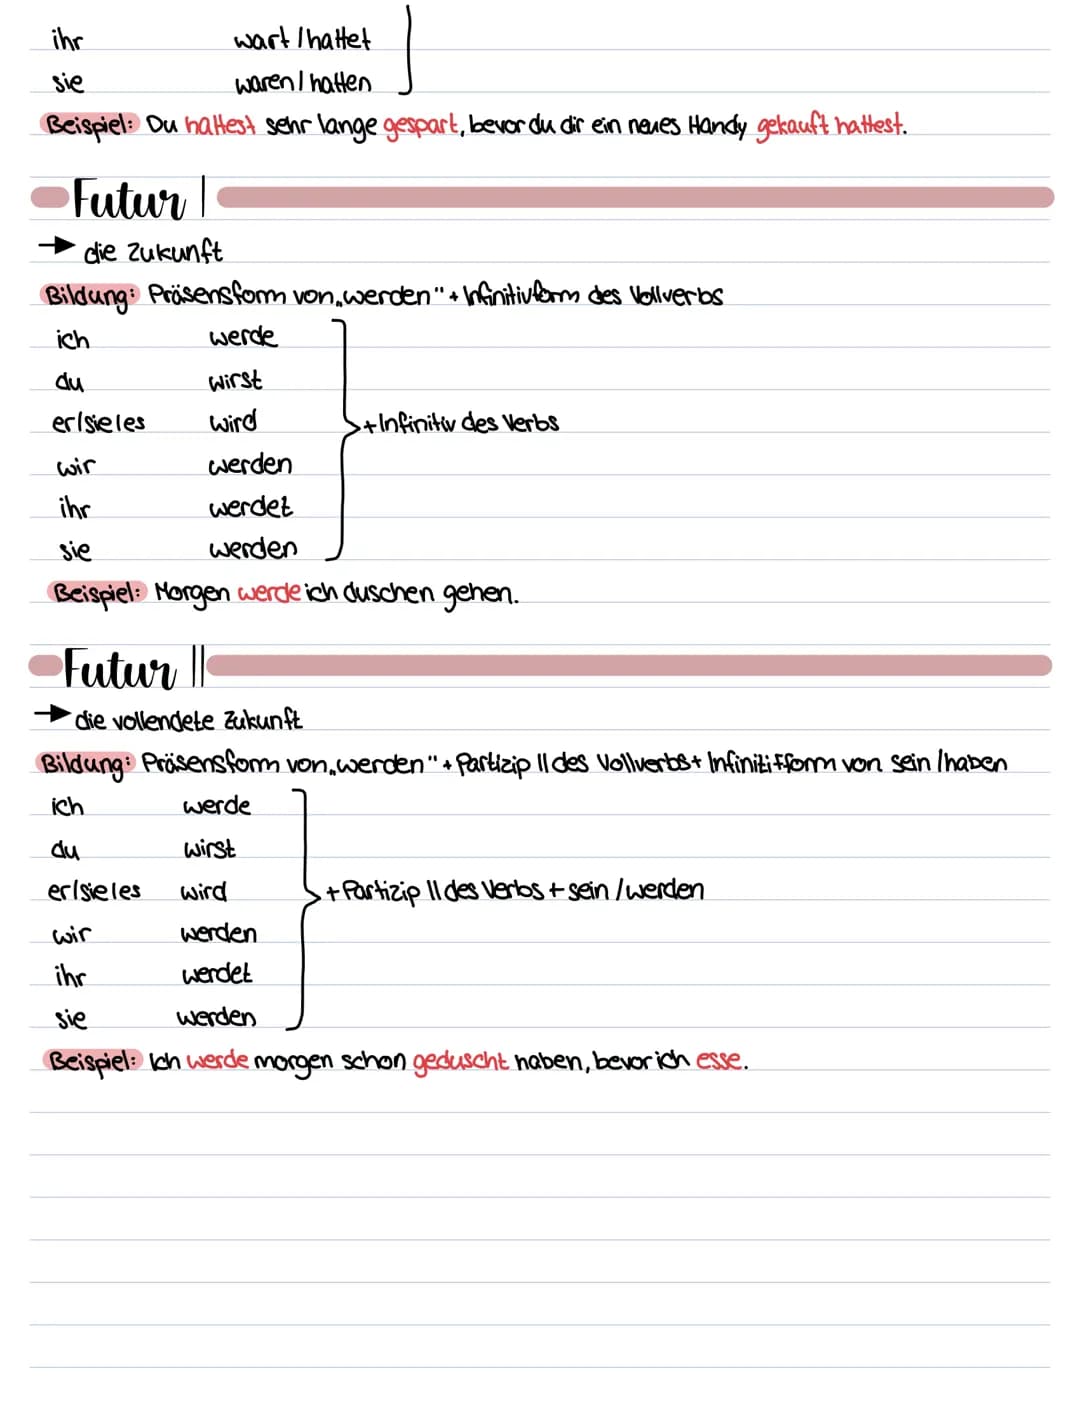 ihr wart / hattet
sie waren / hatten
Beispiel: Du hattest sehr lange gespart, bevor du dir ein neues Handy gekauft hattest.
Futur I
→ die Zukunft
Bildung: Präsensform von „werden" + Infinitivform des Vollverbs
ich werde
du wirst
er/sie/es wird + Infinitiv des Verbs
wir werden
ihr werdet
sie werden
Beispiel: Morgen werde ich duschen gehen.
Futur II
→ die vollendete Zukunft
Bildung: Präsensform von „werden" + Partizip II des Vollverbs + Infinitifform von sein / haben
ich werde
du wirst
er/sie/es wird + Partizip II des Verbs + sein / werden
wir werden
ihr werdet
sie werden
Beispiel: Ich werde morgen schon geduscht haben, bevor ich esse.